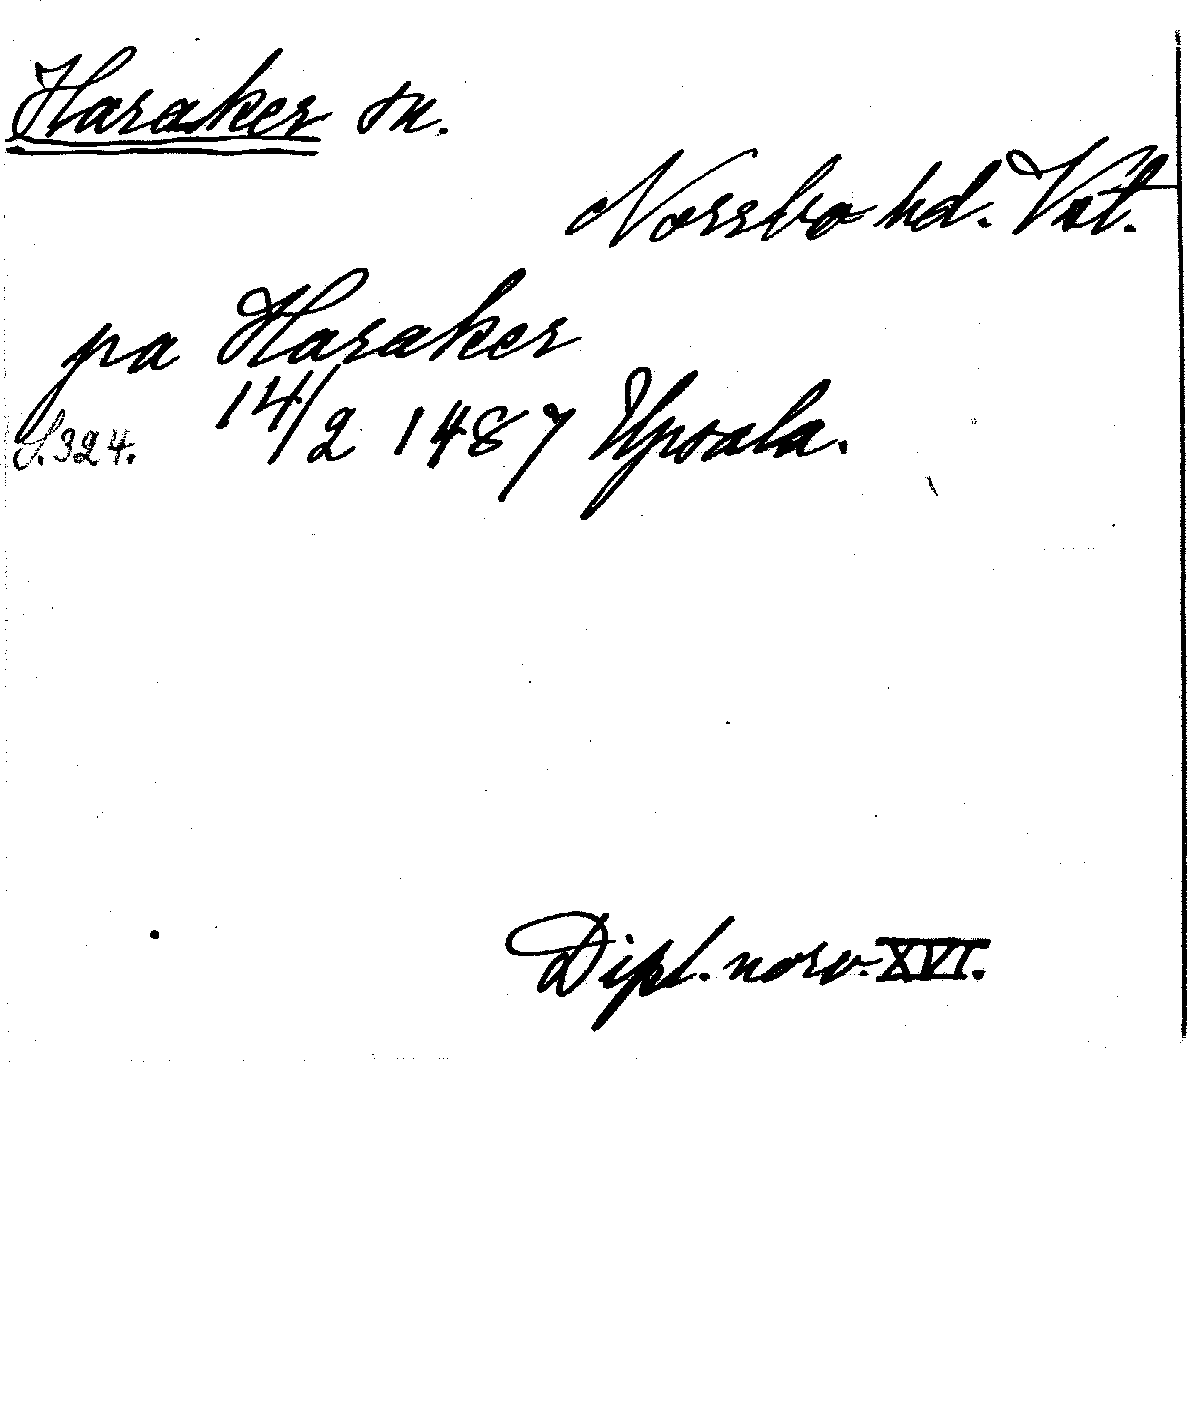 Haraker sn.
Norrbo hd. Vstl.
pa Haraker
14/2 1487 Upsala.
S. 324.
Dipl. norv. XVI.